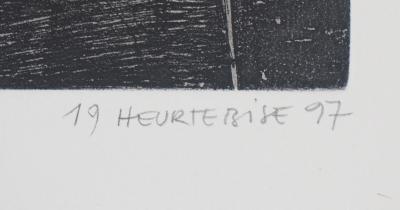 19 HEURTEBISE 97